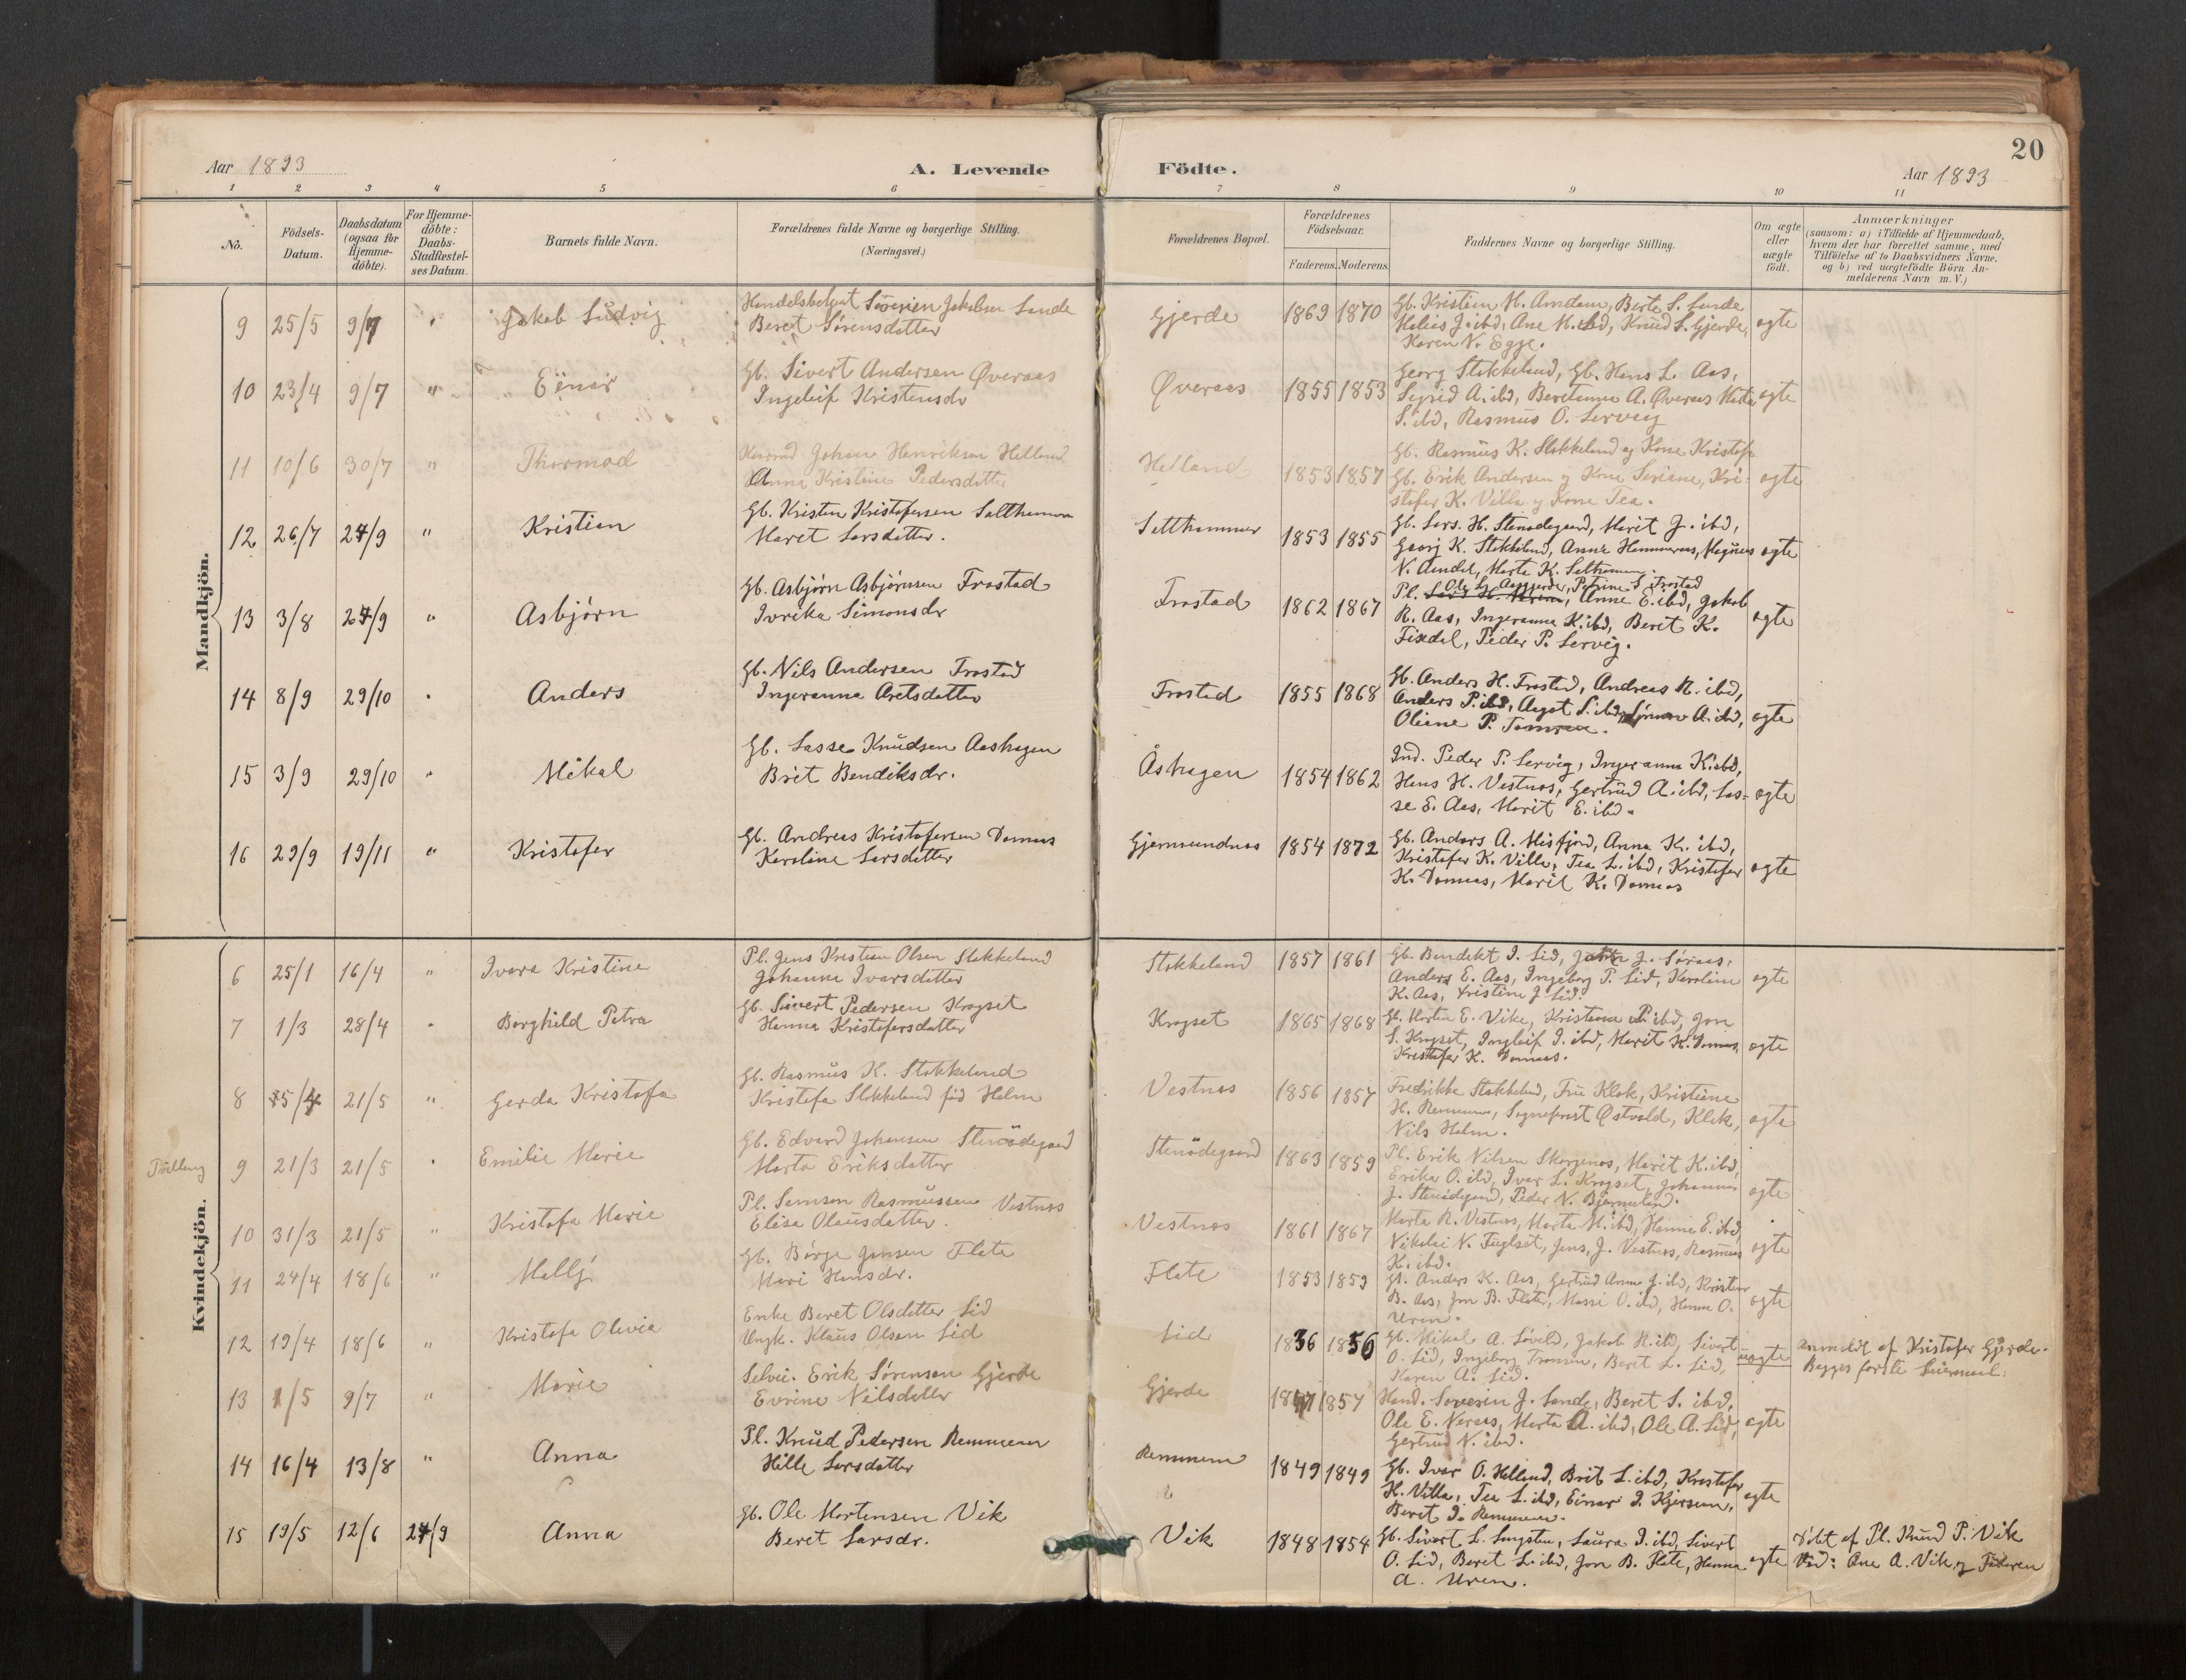 20
Aar 1893
A. Levende
Födte.
Aar 1893
1 2 3 4 5 6 7 8 9 10 11
No.
Födsels-
Datum.
Daabsdatum
(ogsaa for
Hjemme-
döbte).
For Hjemme-
döbte:
Daabs-
Stadfæstel-
ses Datum.
Barnets fulde Navn.
Forældrenes fulde Navne og borgerlige Stilling.
(Næringsvei.)
Forældrenes Bopæl.
Forældrenes
Födselsaar.
Faderens. Moderens.
Faddernes Navne og borgerlige Stilling.
Om ægte
eller
uægte
födt.
Anmærkninger
(saasom: a) i Tilfælde af Hjemmedaab,
hvem der har forrettet samme, med
Tilföielse af to Daabsvidners Navne.
og b) ved uægtefödte Börn An-
melderens Navn m. V.)
Mandkjön.
9 25/5 9/7 " Jakob Ludvig
Sørensen Jakobsen Sande
Beret Sørensdatter
Gjerde 1869 1870
Gb. Kristian M. Amdam, Berte S. Sande
J. ibd, Ane M. ibd, Knud S. Gjerde,
Karen N. Egge.
ægte
10 23/4 9/7 " Einar
Gb. Sivert Andersen Øveraas
Ingeleif Kristensdr
Øveraas 1855 1853
Georg Stokkeland, Gb. Hans L. Aas,
Sigrid A. ibd, A. Øveraas
S. ibd, Rasmus O. Lerveg
ægte
11 10/6 30/7 " Thormod
Konrad Johan Henriksen Helland
Anna Kristine Pedersdatter
Helland 1853 1857
Gb. Rasmus K. Stokkeland og Kone Kristofa
Gb. Erik Andersen og Kone Seriane, Kri-
stofer K. Villa og Kone Tea.
ægte
12 26/7 24/9 " Kristian
Gb. Kristen Kristofersen Salthammer
Maret Larsdatter.
Salthammer 1853 1855
Gb. Lars. H. Stenødegaard, Marit J. ibd,
Georg K. Stokkeland, Anne Hammeraas, Magnus
N. Amdal, Marta K. Salthammer.
ægte
13 3/8 24/9 " Asbjørn
Gb. Asbjørn Asbjørnsen Frostad
Ivrika Simonsdr
Frostad 1862 1867
Petrine S. Frostad
Pl. Anne E. ibd, Jakob
R. Aas, Ingeranna K. ibd, Beret K.
Fixdal, Peder P. Lervig.
ægte
14 8/9 29/10 " Anders
Gb. Nils Andersen Frostad
Ingeranna Aretsdatter
Frostad 1855 1868
Gb. Anders H. Frostad, Andreas N. ibd,
Anders P. ibd, Aagot S. ibd, A. ibd,
Oliane P. Tomren.
ægte
15 3/9 29/10 " Mikal
Gb. Lasse Knudsen Aashagen
Brit Bendiksdr.
Åshagen 1854 1862
Ind. Peder P. Lervig, Ingeranna K. ibd,
Hans H. Vestnes, Gertrud A. ibd, Las-
se E. Aas, Marit E. ibd.
ægte
16 29/9 19/11 " Kristofer
Gb. Andreas Kristofersen Damaas
Karoline Larsdatter
Gjermundnes 1854 1872
Gb. Anders A. Misfjord, Anna K. ibd,
Kristofer K. Villa, Tea L. ibd, Kristofer
K. Damaas, Marit K. Damaas
ægte
Kvindekjön.
6 25/1 16/4 " Ivara Kristine
Pl. Jens Kristian Olsen Stokkeland
Johanna Ivarsdatter
Stokkeland 1857 1861
Gb. Bendikt I. Lid, J. Søraas,
Anders E. Aas, Ingeborg P. Lid, Karoline
K. Aas, Kristine J. Lid.
ægte
7 1/3 28/4 " Borghild Petra
Gb. Sivert Pedersen Kragset
Hanna Kristofersdatter
Kragset 1865 1868
Gb. Morten E. Vike, Kristiana P. ibd, Jon
S. Kragset, Ingleif I. ibd, Marit K. Damaas,
Kristofer K. Damaas.
ægte
8 15/4 21/5 " Gerda Kristofa
Gb. Rasmus K. Stokkeland
Kristofa Stokkeland fød Helm
Vestnes 1856 1857
Fredrikke Stokkeland, Fru Klok, Kristiine
H. Remmem, Sogneprest Østvold, Klok,
Nils Helm.
ægte
Tvilling 9 21/3 21/5 " Emilie Marie
Gb. Edvard Johansen Stenödegaard
Marta Eriksdatter
Stenödegaard 1863 1859
Pl. Erik Nilsen Skorgenes, Marit K. ibd,
Erika O. ibd, Ivar L. Kragset, Johannes
J. Stenødegaard, Peder N. Bjermeland.
ægte
10 31/3 21/5 " Kristofa Marie
Pl. Samson Rasmussen Vestnes
Elisa Olausdatter.
Vestnes 1861 1867
Marta R. Vestnes, Marta M. ibd, Hanna E. ibd,
Nikolai N. Fuglset, Jens J. Vestnes, Rasmus
K. ibd.
ægte
11 24/4 18/6 " Mally
Gb. Börge Jensen Flate
Mari Hansdr.
Flate 1853 1859
Gb. Anders K. Aas, Gertrud Anna J. ibd, Kristen
B. Aas, Jon B. Flate, Massi O. ibd, Hanna O.
Uren.
ægte
12 19/4 18/6 " Kristofa Olivia
Enke Beret Olsdatter Lid
Ungk. Klaus Olsen Lid
Lid 1836 1856
Gb. Mikal A. Løvold, Jakob N. ibd, Sivert
O. Lid, Ingeborg Tromsen, Beret L. Lid,
Karen A. Lid.
uægte
Anmeldt af Kristofer Gjerde.
Begges første
13 1/5 9/7 " Marie
Selvei. Erik Sørensen Gjerde
Evrine Nilsdatter
Gjerde 1847 1857
Hand. Severin J. Sande, Beret S. ibd,
Ole E. Neraas, Marta A. ibd, Ole A. Lid,
Gertrud N. ibd.
ægte
14 16/4 13/8 " Anna
Pl. Knud Pedersen Remmem
Hille Larsdatter
Remmem 1849 1849
Gb. Ivar O. Helland, Brit L. ibd, Kristofer
K. Villa, Tea L. ibd, Einar I. Kjersem,
Beret I. Remmem.
ægte
15 19/5 12/6 24/9 Anna
Gb. Ole Mortensen Vik
Beret Larsdr.
Vik 1848 1854
Gb. Sivert L. Laura I. ibd, Sivert
O. Lid, Beret L. ibd, Jon B. Flate, Hanna
A. Uren.
ægte
Døbt af Pl. Knud P. Vik
Vid: Ane A. Vik og Faderen